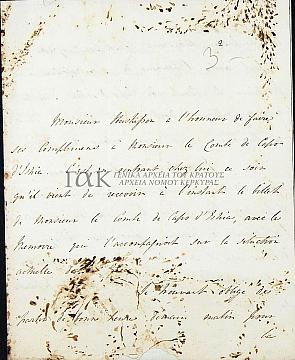 3 2
Monsieur Huskisson a l'honneur de faire
ses complimens à Monsieur le Comte de Capo
d'Istria. C'est en rentrant chez lui ce soir
ΓΕΝΙΚΑ ΑΡΧΕΙΑ ΤΟΥ ΚΡΑΤΟΥΣ
ΑΡΧΕΙΑ ΝΟΜΟΥ ΚΕΡΚΥΡΑΣ
qu'il vient de recevoir à l'instant le billet
de Monsieur le Comte de Capo d'Istria, avec le
Memoire qui l'accompagnoit sur la situation
actuelle
Se trouvant obligé de
partir de bonne heure demain matin pour
la